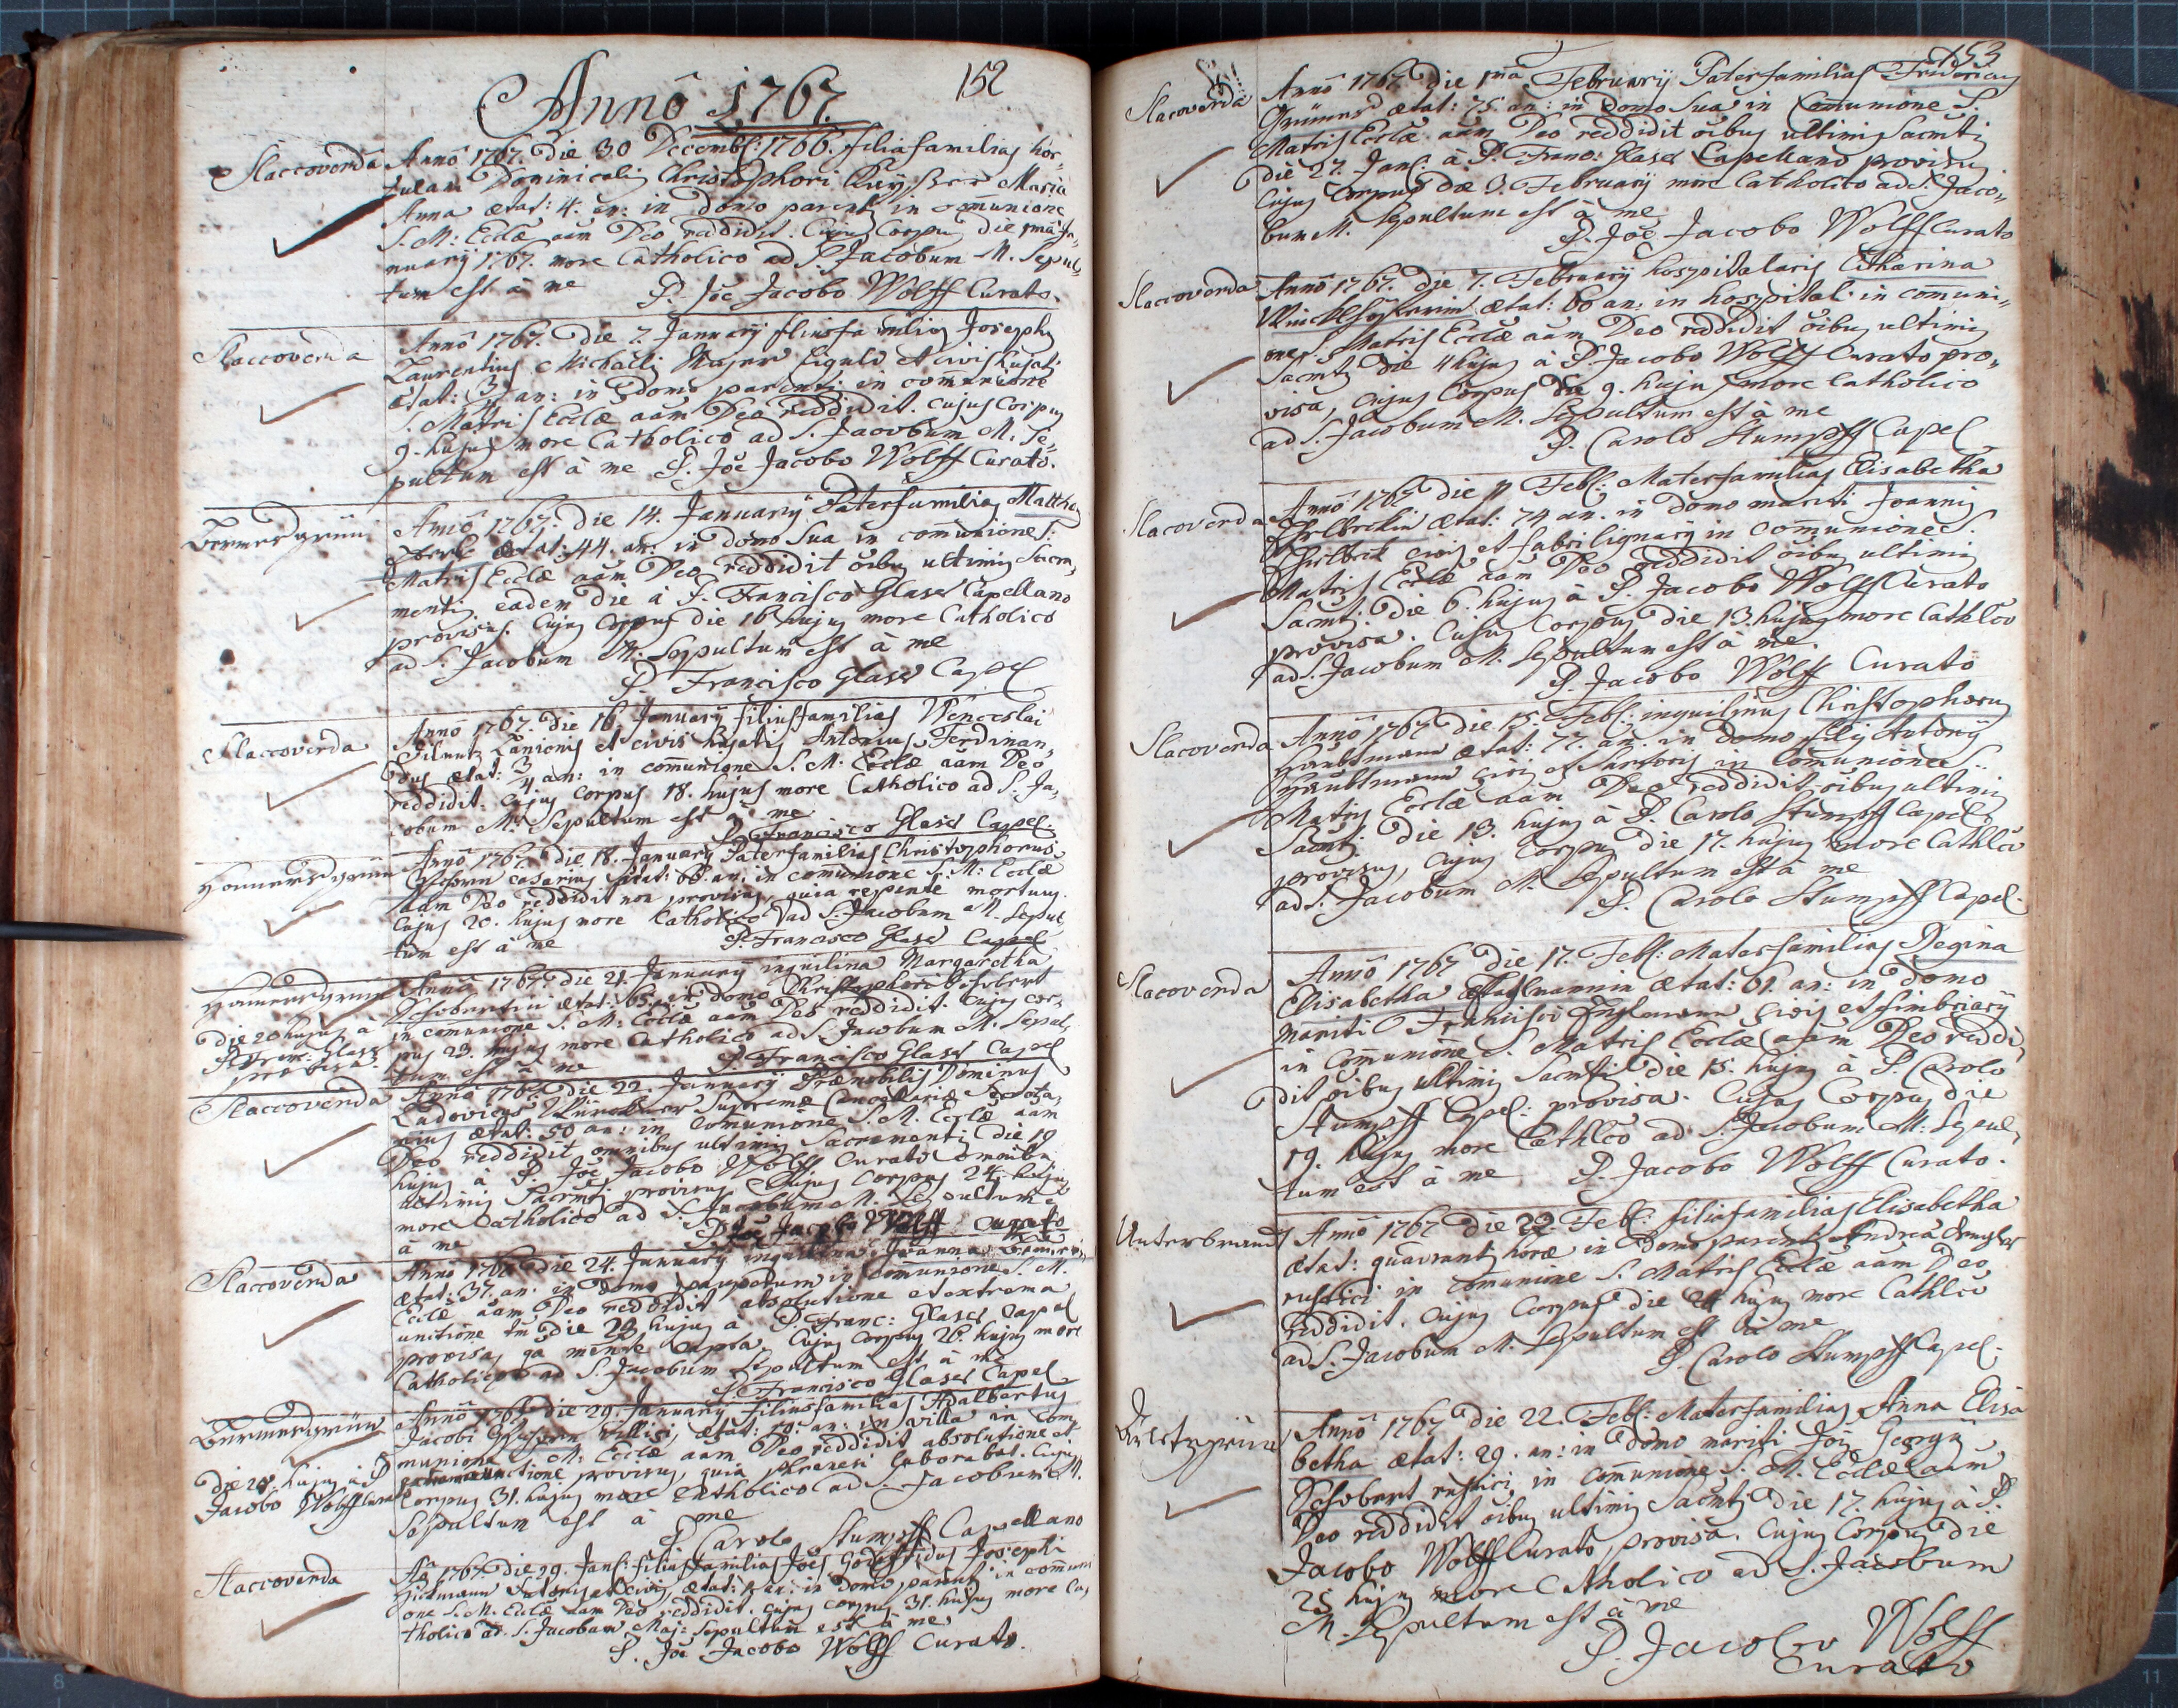 152
Annô 1767.
Slaccoverda
Annô 1767. Die 30 Decembr: 1766. filiafamilias hor„
tulani Dominicalis Christophori Maria
Anna ætat: 4. an: in domo parent: in comunione
S. M: Eccłæ aam Deo reddidit. Cujus Corpus die 1mâ Ja„
nuarÿ 1767. more Catholico ad S. Jacobum M. Sepul„
tum est à me P. Joe Jacobo Wolff Curato.
Slaccoverda
Annô 1767. Die 7. Januarÿ filiusfamilias Josephus
Laurentius Michaëlis Majer figuli et civis hujatis
ætat: an: in Domo parentis in comunione
S. Matris Eccłæ aam Deo reddidit. cujus Corpus
9. hujus more Catholico ad S. Jacobum M. Se„
pultum est à me P. Joe Jacobo Wolff Curato.
Vermesgrün
Annô 1767. Die 14. Januarÿ Paterfamilias Matthæus
ætat: 44. an: in domo sua in comunione S:
Matris Eccłæ aam Deo reddidit oibus ultimis Sacra„
mentis eadem die à P. Francisco Glaser Capellano
provisus. Cujus Corpus die 16 hujus more Catholico
ad S. Jacobum M. Sepultum est à me
P. Francisco Glaser Capel
Slaccoverda
Annô 1767. Die 16. Januarÿ filiusfamilias Wenceslai
Lanionis et civis hujatis Antonius Ferdinan„
dus ætat: 3/4 an: in comunione S. M. Eccłæ aam Deo
reddidit. Cujus corpus 18. hujus more Catholico ad S. Ja„
cobum M. Sepultum est à me
P. Francisco Glaser Capel.
Annô 1767. Die 18. Januarÿ Paterfamilias Christophorus
casarius ætat: an: in comunione S: M: Eccłæ
aam Deo reddidit non provisus, quia repente mortuus.
Cujus 20. hujus more Catholico ad S. Jacobum M. Sepul
tum est à me P. Francisco Glaser Capel
Die 20 hujus à
P. Franc: Glaser
provisa.
Annô 1767. Die 21. Januarÿ inquilina Margaretha
Schobertin ætat: 65. in domo Christophori Schobert
in comunione S. M: Eccłæ aam Deo reddidit. Cujus cor„
pus 23. hujus more Catholico ad S. Jacobum M. Sepul„
tum est à me P. Francisco Glaser Capel
Slaccoverda
Annô 1767. Die 22. Januarÿ Prænobilis Dominus
Ludovicus Supremæ Cancellariæ Secreta„
rius ætat: 50 an: in comunione S. M. Eccłæ aam
Deo reddidit omnibus ultimis Sacramentis die 19
hujus à P. Joe Jacobo Wolff Curato omnibus
ultimis Sacmtis provisus Cujus Corpus 24. hujus
more Catholico ad S. Jacobum M. Sepultum e
à me P. Joe Jacobo Wolff Curato
Slaccoverda
Annô 1767 Die 24. Januarÿ inquilina Joanna
ætat: 37. an. in domo pauperum in comunione S. M.
Eccłæ aam Deo reddidit absolutione et extrema
unctione tm die 23 hujus à P. Franc: Glaser Capel
provisa, qa mente capta. Cujus Corpus 26. hujus more
Catholico ad S. Jacobum Sepultum est à me
P. Francisco Glaser Capel
Vermesgrün
Die 28 hujus à P
Jacobo Wolff Curato
Annô 1767 Die 29. Januarÿ filiusfamilias Adalbertus
Jacobi Villici, ætat: 50. an: in villa in com„
munione S. M: Eccłæ aam Deo reddidit absolutione et
extrema unctione provisus, quia phrenesi laborabat. Cujus
Corpus 31. hujus more Catholico ad S. Jacobum M.
Sepultum est à me
P. Carolo Stumpff Capellano
Slaccoverda
Aô 1767. Die 29. Jan: filiusfamilias Joes Godefridus Josephi
Sutoris et civis ætat: 1 an: in domo parent: in comuni
one S. M. Eccłæ aam Deo reddidit. Cujus corpus 31. hujus more Ca„
tholico ad S. Jacobum Maj: Sepultum est à me
P. Joe Jacobo Wolff Curato.
153
Slacoverda
Annô 1767 Die 1ma Februarÿ Paterfamilias Fridericus
Grüner ætat: 75. an: in Domo Sua in Comunione S.
Matris Eccłæ aam Deo reddidit oibus ultimis Sacmtis
die 27. Jan: à P. Franc: Glaser Capellano provisus
Cujus Corpus die 3. Februarÿ more Catholico ad S. Jaco„
bum M. Sepultum est à me
P. Joe Jacobo Wolff Curato
Slaccoverda
Annô 1767. Die 7. Februarÿ hospitalaris Catharina
ætat: 60 an: in hospital. in comuni„
one S. Matris Eccłæ aam Deo reddidit oibus ultimis
Sacmtis die 4 hujus à P. Jacobo Wolff Curato pro„
visa, cujus Corpus die 9. hujus more Catholico
ad S. Jacobum M. Sepultum est à me
P. Carolo Stumpff Capel
Slacoverda
Annô 1767 Die 11 Feb: Materfamilias Elisabetha
ætat: 74 an. in domo mariti Joannis
civis et fabri lignarÿ in comunione S.
Matris Eccłæ aam Deo reddidit oibus ultimis
Sacmt: die 6. hujus à P. Jacobo Wolff Curato
provisa. Cujus Corpus die 13. hujus more Cathlco
ad S. Jacobum M. Sepultum est à me.
P. Jacobo Wolff Curato
Slacoverda
Annô 1767 Die 15. Feb: inquilinus Christophorus
Haubtmann ætat: 77. an. in domo filÿ Antonÿ
Haubtmann civis et Sartoris in Comunione S.
Matris Eccłæ aam Deo reddidit oibus ultimis
Sacmt: die 13. hujus à P. Carolo Stumpff Capel
provisus, cujus Corpus die 17. hujus more Cathlco
ad S. Jacobum M. Sepultum est à me
P. Carolo Stumpff Capel.
Slacoverda
Annô 1767 Die 17. Feb: Materfamilias Regina
Elisabetha Englmannin ætat: 61. an: in domo
mariti Francisci Englmann civis et fimbriarÿ
in Comunione S. Matris Eccłæ aam Deo reddi„
dit oibus ultimis Sacmtis die 15. hujus à P. Carolo
Stumpff Capel: provisa. Cujus Corpus die
19. hujus more Cathlco ad S. Jacobum M: Sepul„
tum est à me P. Jacobo Wolff Curato.
Unterbrand
Annô 1767 Die 22. Feb: filiafamilias Elisabetha
ætat: quadrantis horæ in Domo parent: Andreæ
rustici in Comunione S. Matris Eccłæ aam Deo
reddidit. Cujus Corpus die 24 hujus more Cathlco
ad S. Jacobum M. Sepultum est à me
P. Carolo Stumpff Capel.
Annô 1767 Die 22. Feb: Materfamilias Anna Elisa
betha ætat: 29. an: in Domo mariti Jois Georgÿ
Schobert rustici, in comunione S. M. Eccłæ aam
Deo reddidit oibus ultimis Sacmtis die 17. hujus à P.
Jacobo Wolff Curato provisa. Cujus Corpus die
25 hujus more Catholico ad S. Jacobum
M. Sepultum est à me
P. Jacobo Wolff
Curato
8
11